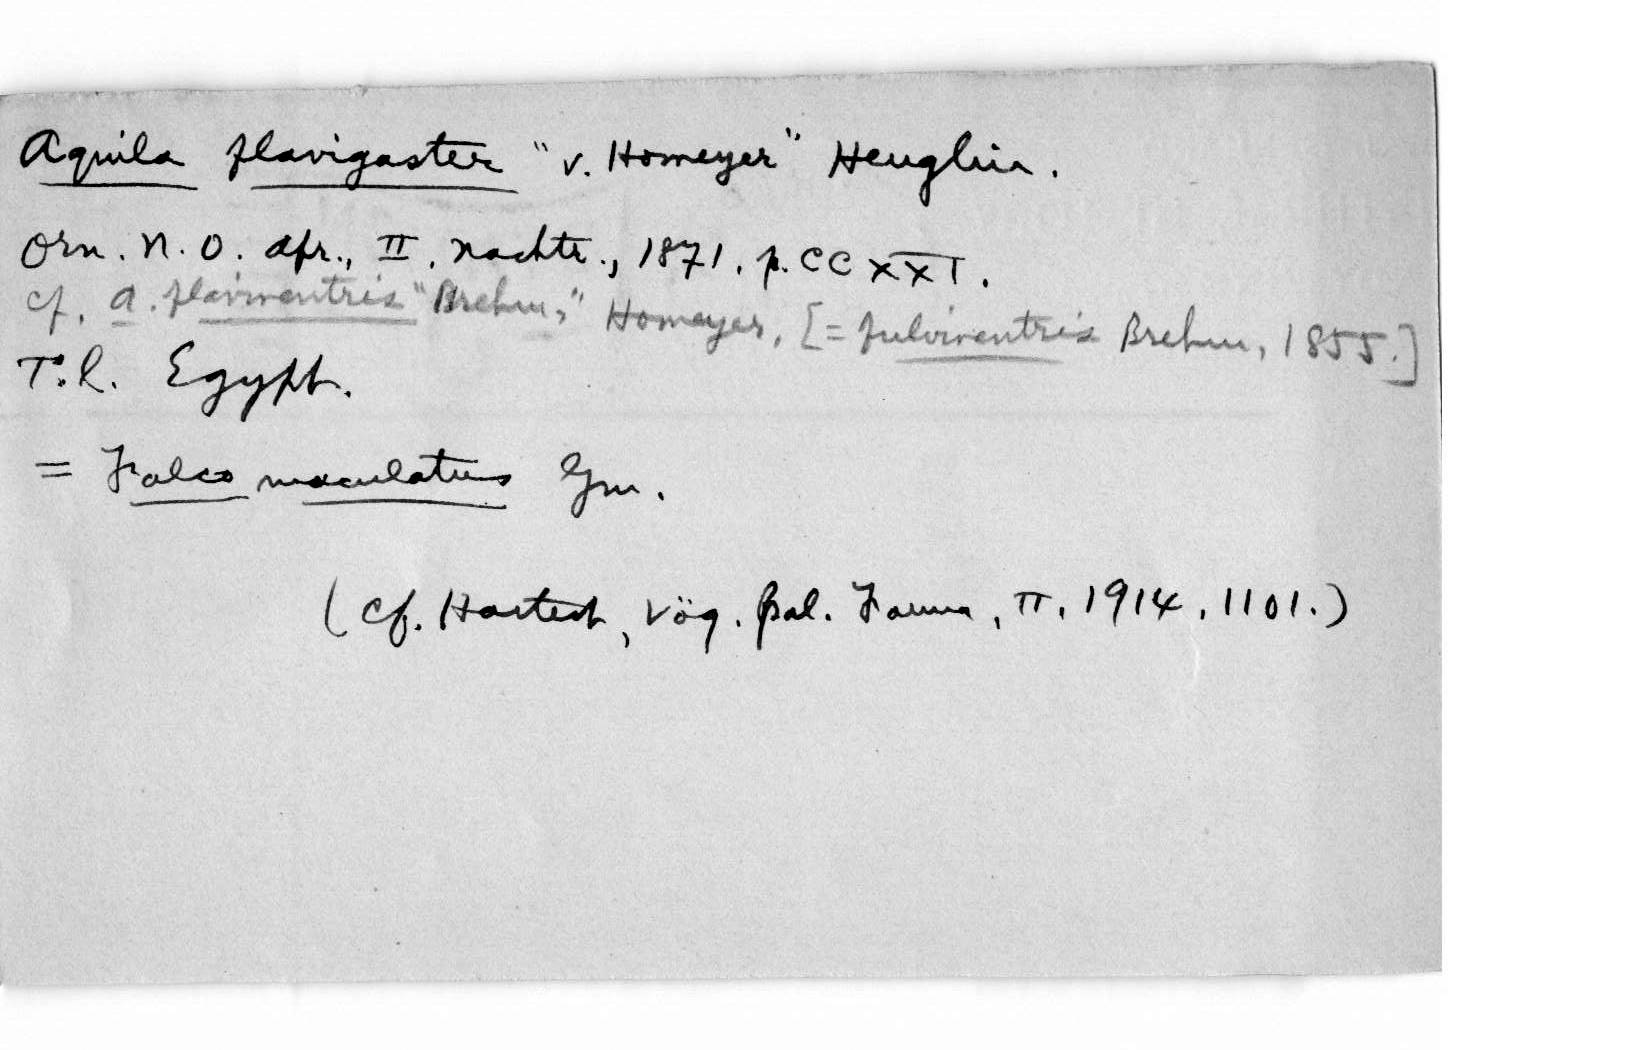 Aquila flavigaster "v. Homeyer" Heuglin.
Orn. N. O. Afr., II, Nachtr., 1871, p. CCXXI.
cf. A. flaviventris "Brehm," Homeyer, [= fulviventris Brehm, 1855.]
T.l. Egypt.
= Falco maculatus Gm.
(cf. Hartert, Vög. pal. Fauna, II, 1914, 1101.)